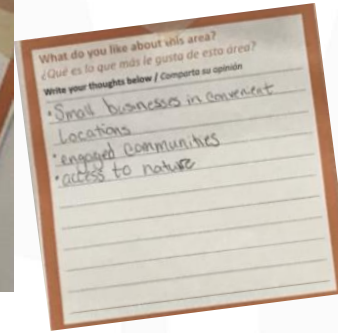 What do you like about this area?
¿Qué es lo que más le gusta de esta área?
Write your thoughts below / Comparta su opinión
• Small businesses in convenient
locations
• engaged communities
• access to nature